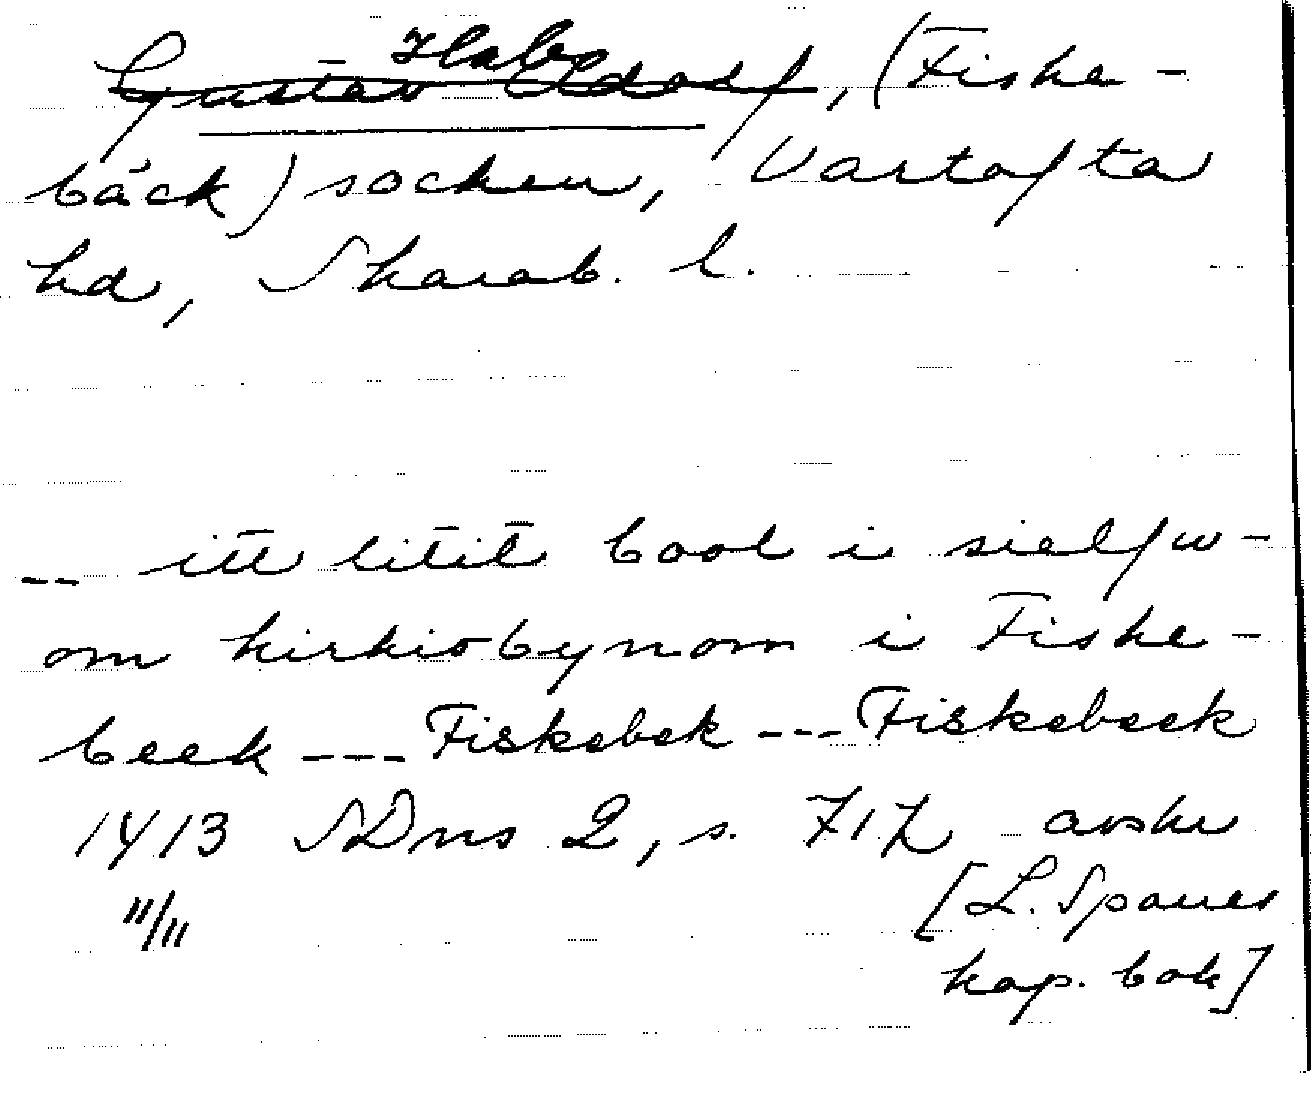 Habo
Gustav Adolf, (Fiske-
bäck) socken, Vartofta
hd, Skarab. l.
-- itt litit bool i sielfw-
om kirkiobynom i Fiske-
beek --- Fiskebek --- Fiskebeek
1413 SDns 2, s. 717 avskr
11/11 [L. Spares
kop. bok]